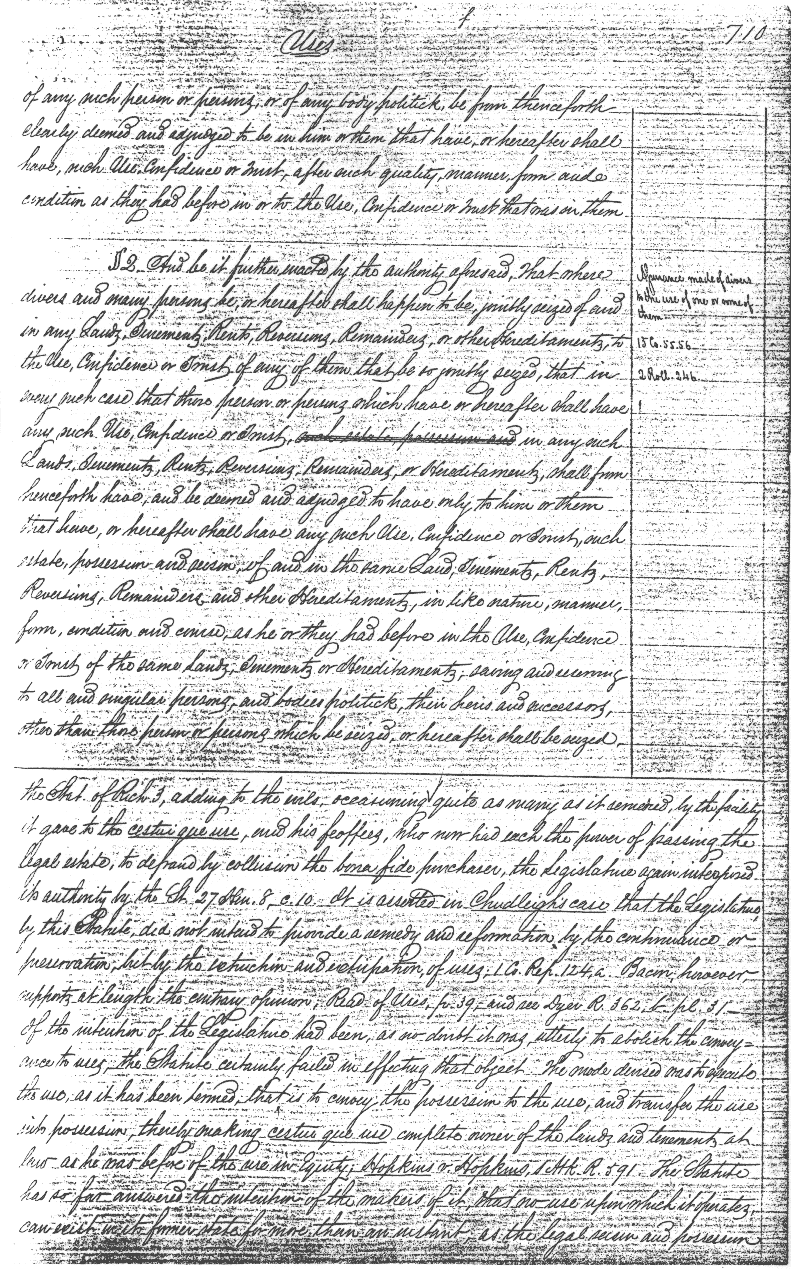 f
Uses
710
of any such person or persons, or of any body politick, be from thenceforth
clearly deemed and adjudged to be in him or them that have, or hereafter shall
have, such Use, Confidence or Trust, after such quality, manner, form and
condition as they had before in or to the Use, Confidence or Trust that was in them
§2. And be it further enacted by the authority aforesaid, That where
divers and many persons be, or hereafter shall happen to be, jointly seized of and
in any Lands, Tenements, Rents, Reversions, Remainders, or other Hereditaments, to
the Use, Confidence or Trust of any of them that be so jointly seized, that in
every such case that those person or persons which have or hereafter shall have
any such Use, Confidence or Trust, such estate possession and in any such
Lands, Tenements, Rents, Reversions, Remainders, or Hereditaments, shall from
henceforth have, and be deemed and adjudged to have only, to him or them
that have, or hereafter shall have any such Use, Confidence or Trust, such
estate, possession and seisin, of and in the same Land, Tenements, Rents,
Reversions, Remainders and other Hereditaments, in like nature, manner,
form, condition and course, as he or they had before in the Use, Confidence
or Trust of the same Lands, Tenements or Hereditaments, saving and reserving
to all and singular persons, and bodies politick, their heirs and successors,
other than those person or persons which be seized, or hereafter shall be seized
made of divers
to the use of one or some of
them
13 Co. 55. 56
2 Roll. 246
the Stat. of Rich. 3, adding to the evils, occasioning quite as many as it removed, by the facility
it gave to the cestui que use, and his feoffees, who now had each the power of passing the
legal estate, to defraud by collusion the bona fide purchaser, the Legislature again interposed
its authority by the St. 27 Hen. 8, c. 10. It is asserted in Chudleigh's case that the Legislature
by this Statute, did not intend to provide a remedy and reformation by the continuance or
preservation, but by the extinction and extirpation, of uses, 1 Co. Rep. 124, a. Bacon, however,
supports at length the contrary opinion, Read. of Uses, fo. 39, and see Dyer R. 362, b. pl. 31
If the intention of the Legislature had been, as no doubt it was, utterly to abolish the convey=
ance to uses, the Statute certainly failed in effecting that object. The mode devised was to execute
the use, as it has been termed, that is to convey the possession to the use, and transfer the use
into possession, thereby making cestui que use complete owner of the lands and tenements at
law as he was before of the use in Equity, Hopkins v. Hopkins, 1 Atk. R. 591. The Statute
has so far answered the intention of the makers of it, that no use upon which it operates,
can exist in its former state for more than an instant, as the legal seisin and possession